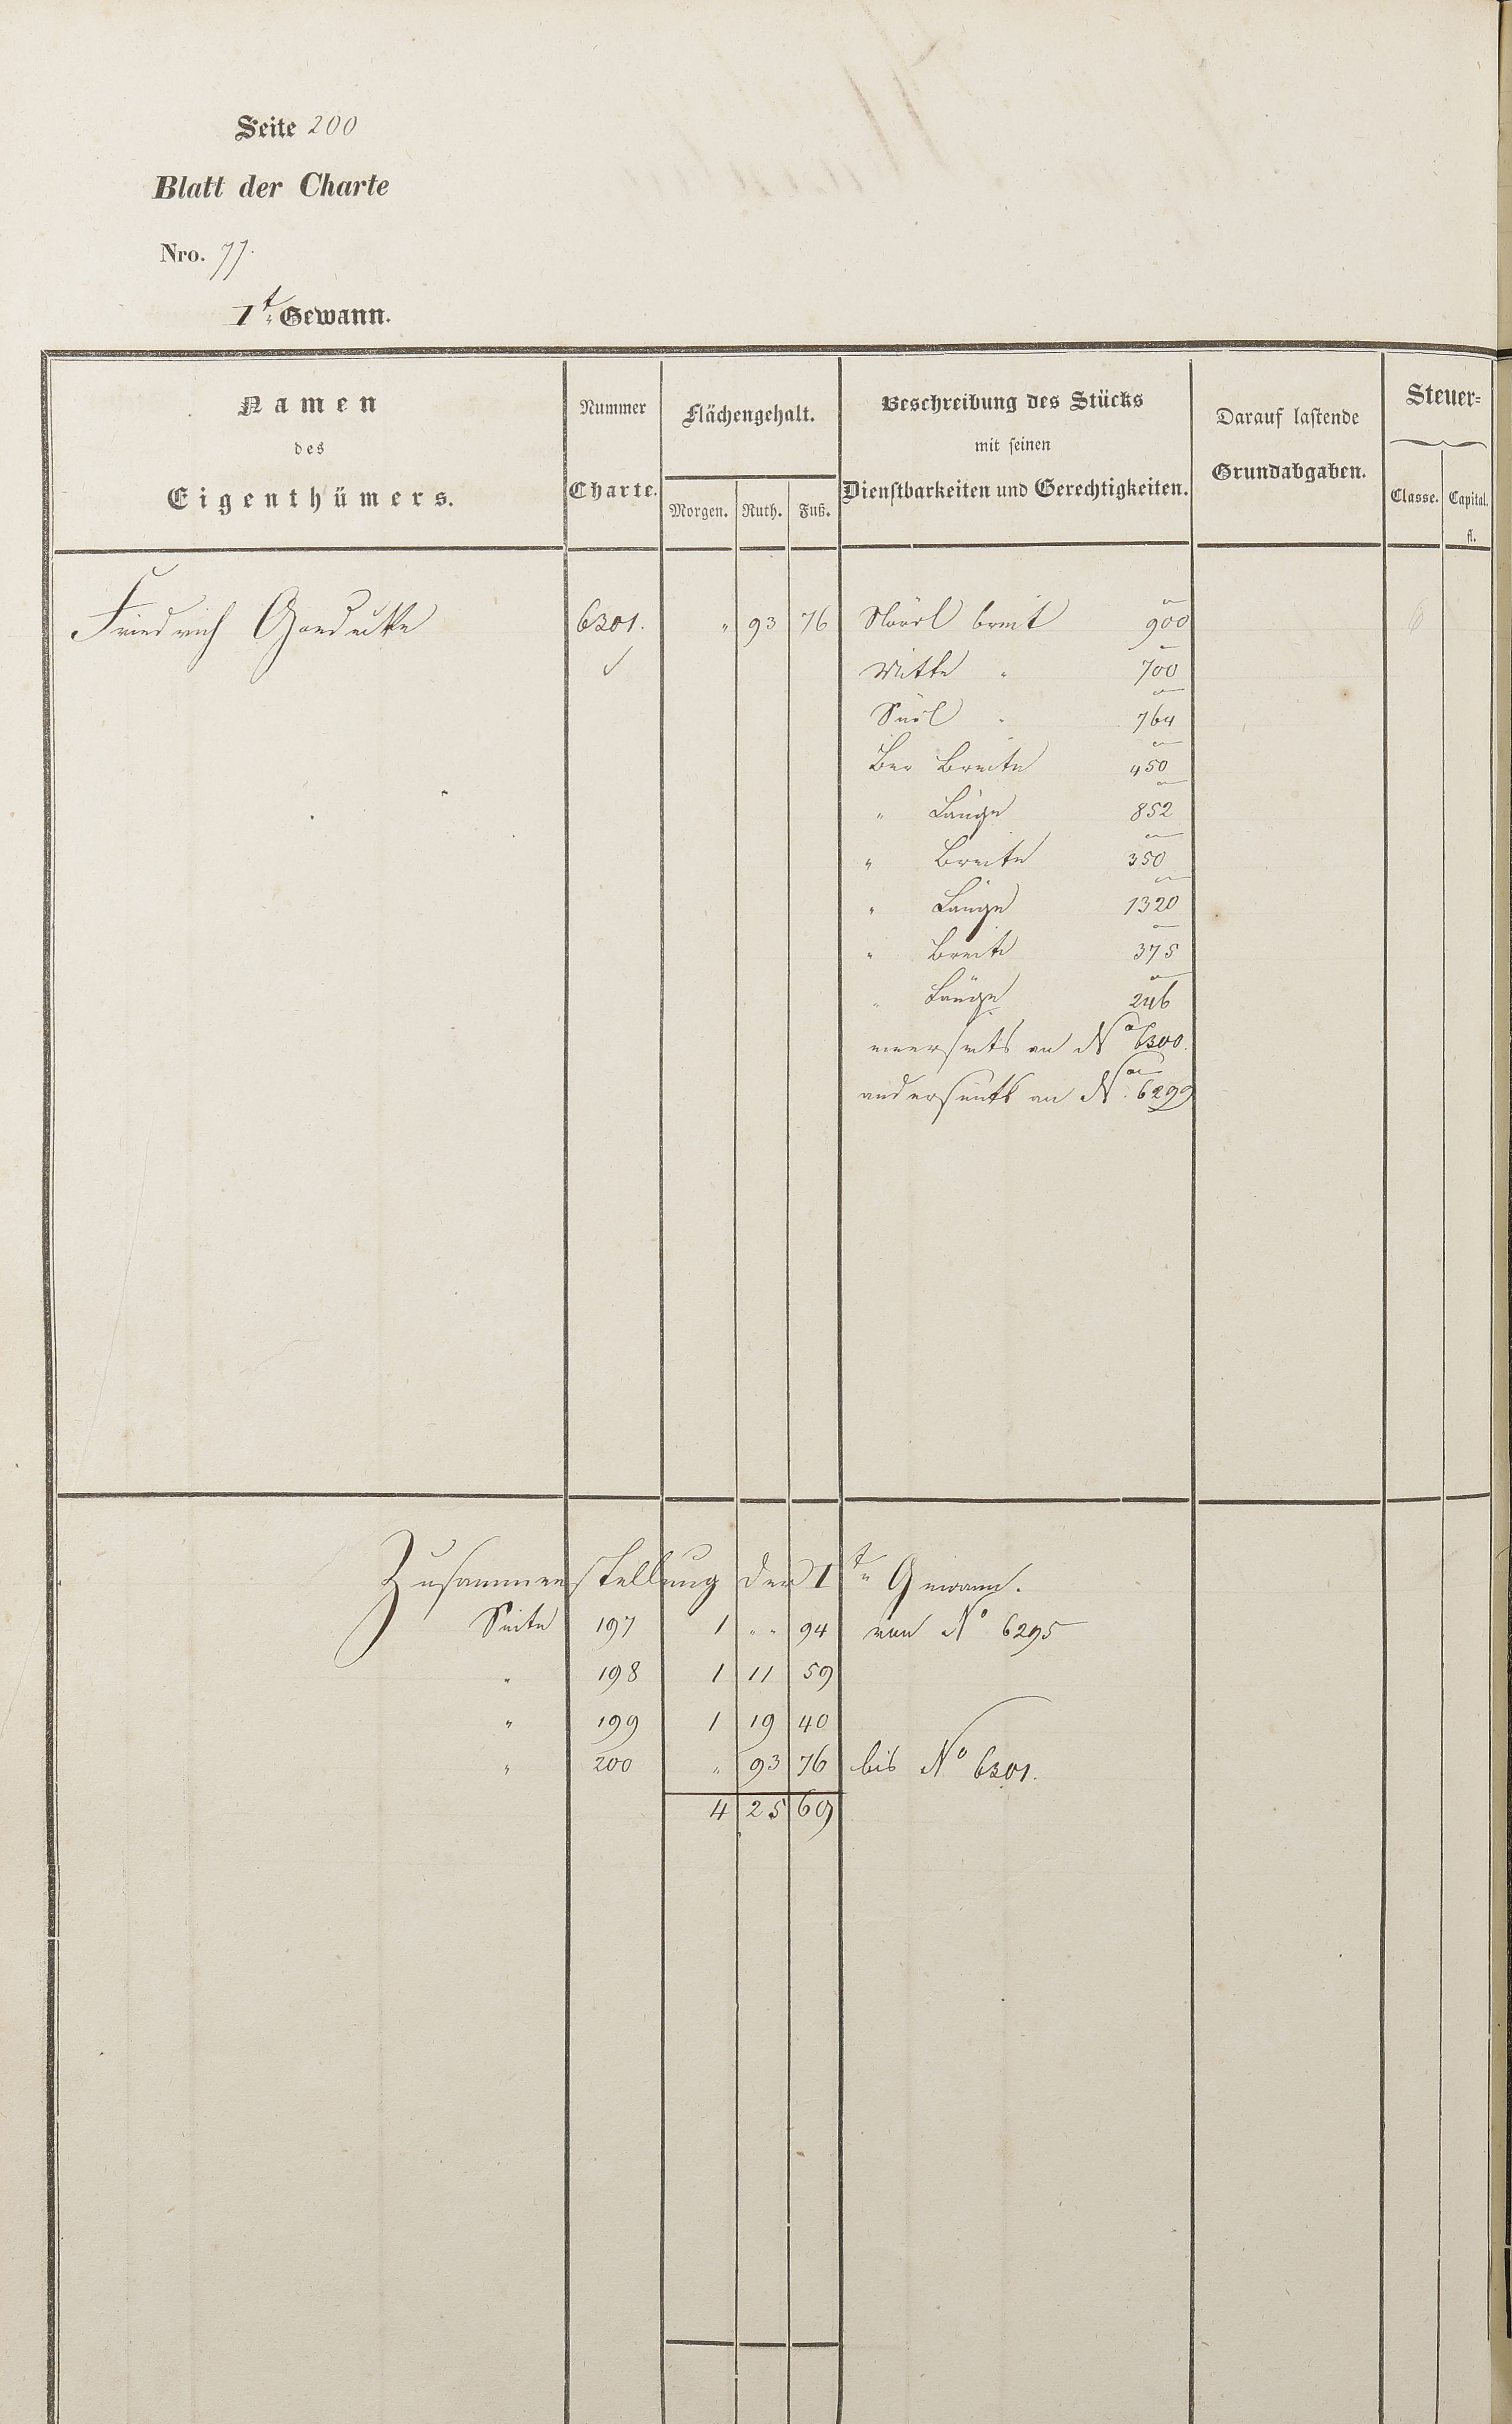 Seite 200
Blatt der Charte
Nro. 77.
I t: Gewann.
Namen des Eigenthümers.
Nummer Charte.
Flächengehalt.
Morgen. Ruth. Fuß.
Beschreibung des Stücks mit seinen Dienstbarkeiten und Gerechtigkeiten.
Darauf lastende Grundabgaben.
Steuer=
Classe. Capital. fl.
Friedrich 6301. " 93 76 Nördl breit 900
Mitte " 700
Südl " 764
Ber Breite 450
" Länge 852
" Breite 350
" Länge 1320
" Breite 375
" Länge 246
einerseits an No 6300.
anderseits an No 6299
6
Zusammenstellung der I t: Gewann.
Seite 197 1 " " 94 von No 6295
" 198 1 11 59
" 199 1 19 40
" 200 " 93 76 bis No 6301.
4 25 69